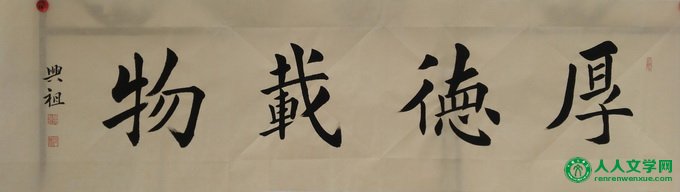 厚德載物
興祖
人人文学网
renrenwenxue.com